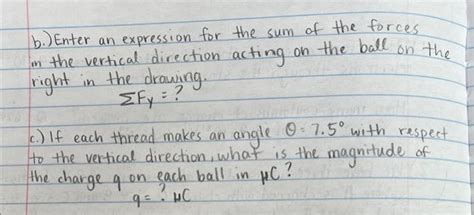 b.) Enter an expression for the sum of the forces
in the vertical direction acting on the ball on the
right in the drawing.
ΣFy = ?
c.) If each thread makes an angle θ = 7.5° with respect
to the vertical direction, what is the magnitude of
the charge q on each ball in μC?
q = ? μC